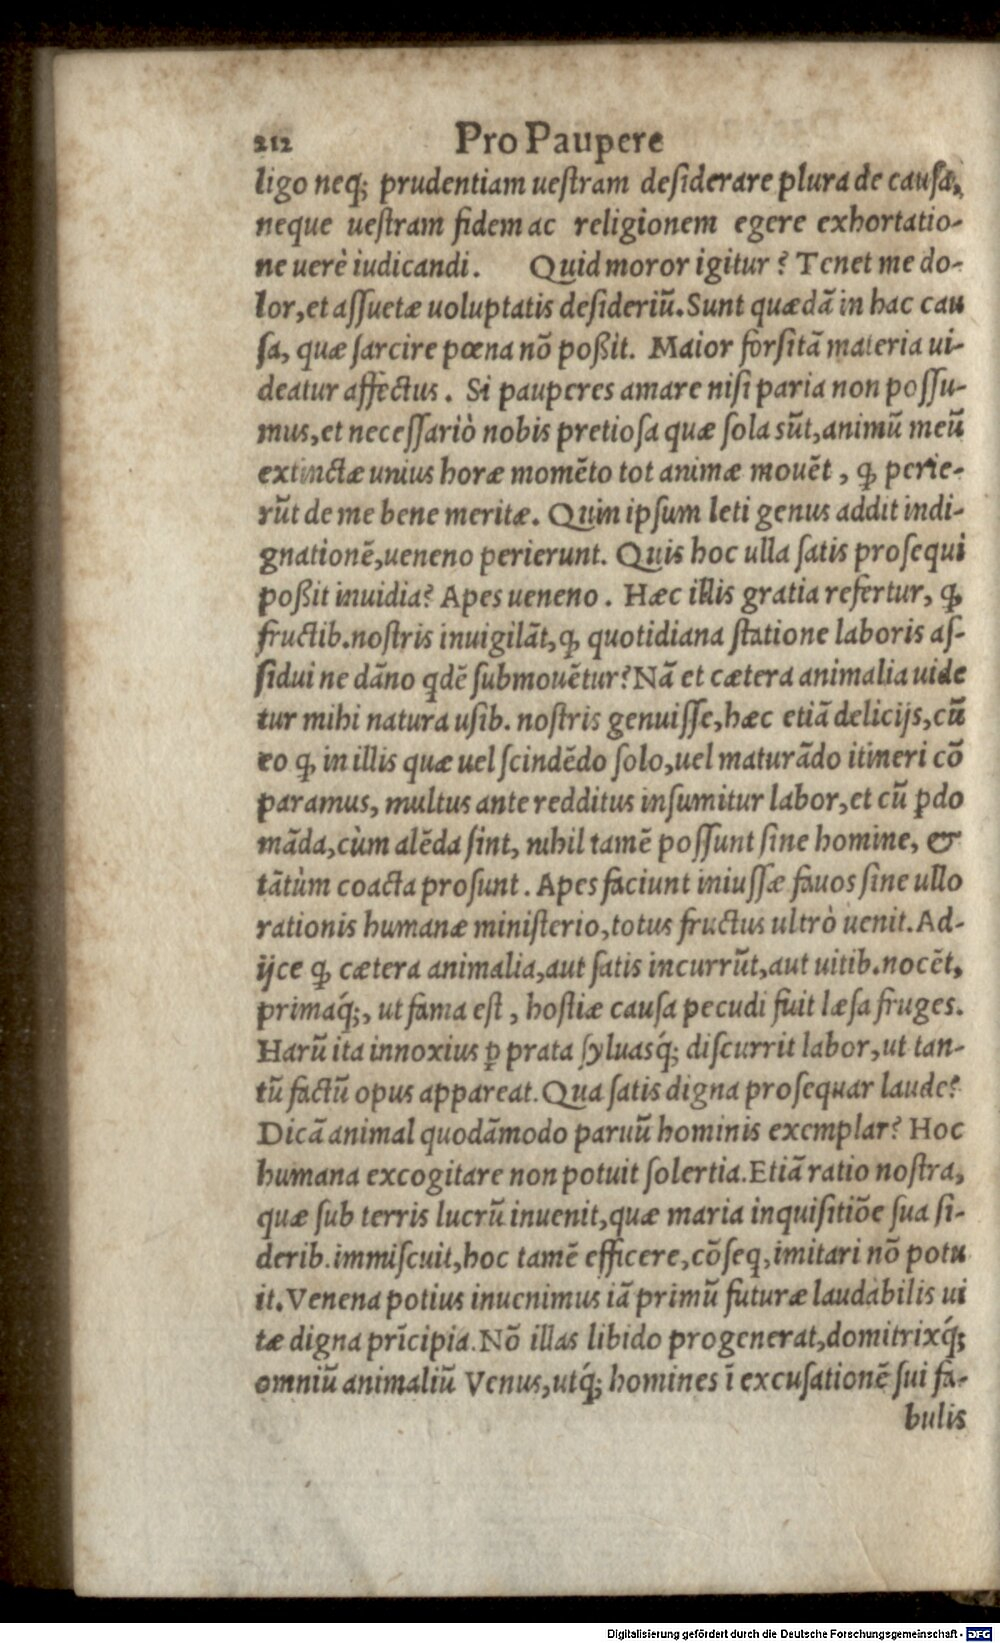 212 Pro Paupere
ligo neq; prudentiam uestram desiderare plura de causa,
neque uestram fidem ac religionem egere exhortatio-
ne uerè iudicandi. Quid moror igitur? Tenet me do-
lor, et assuetæ uoluptatis desideriũ. Sunt quædã in hac cau
sa, quæ sarcire pœna nõ poßit. Maior forsitã materia ui-
deatur affectus. Si pauperes amare nisi paria non possu-
mus, et necessariò nobis pretiosa quæ sola sũt, animũ meũ
extinctæ unius horæ momẽto tot animæ mouẽt, ꝙ perie-
rũt de me bene meritæ. Quin ipsum leti genus addit indi-
gnationẽ, ueneno perierunt. Quis hoc ulla satis prosequi
poßit inuidia? Apes ueneno. Hæc illis gratia refertur, ꝙ
fructib. nostris inuigilãt, ꝙ quotidiana statione laboris as-
sidui ne dãno qdẽ submouẽtur? Nã et cætera animalia uide
tur mihi natura usib. nostris genuisse, hæc etiã delicijs, cũ
eo ꝙ in illis quæ uel scindẽdo solo, uel maturãdo itineri cõ
paramus, multus ante redditus insumitur labor, et cũ ꝑdo
mãda, cùm alẽda sint, nihil tamẽ possunt sine homine, &
tãtùm coacta prosunt. Apes faciunt iniussæ fauos sine ullo
rationis humanæ ministerio, totus fructus ultrò uenit. Ad-
ijce ꝙ cætera animalia, aut satis incurrũt, aut uitib. nocẽt,
primaq́;, ut fama est, hostiæ causa pecudi fuit læsa fruges.
Harũ ita innoxius ꝑ prata syluasq́; discurrit labor, ut tan-
tũ factũ opus appareat. Qua satis digna prosequar laude?
Dicã animal quodãmodo paruũ hominis exemplar? Hoc
humana excogitare non potuit solertia. Etiã ratio nostra,
quæ sub terris lucrũ inuenit, quæ maria inquisitiõe sua si-
derib. immiscuit, hoc tamẽ efficere, cõseq, imitari nõ potu
it. Venena potius inuenimus iã primũ futuræ laudabilis ui
tæ digna prĩcipia. Nõ illas libido progenerat, domitrixq́;
omniũ animaliũ Venus, utq́; homines ĩ excusationẽ sui fa-
bulis
Digitalisierung gefördert durch die Deutsche Forschungsgemeinschaft - DFG